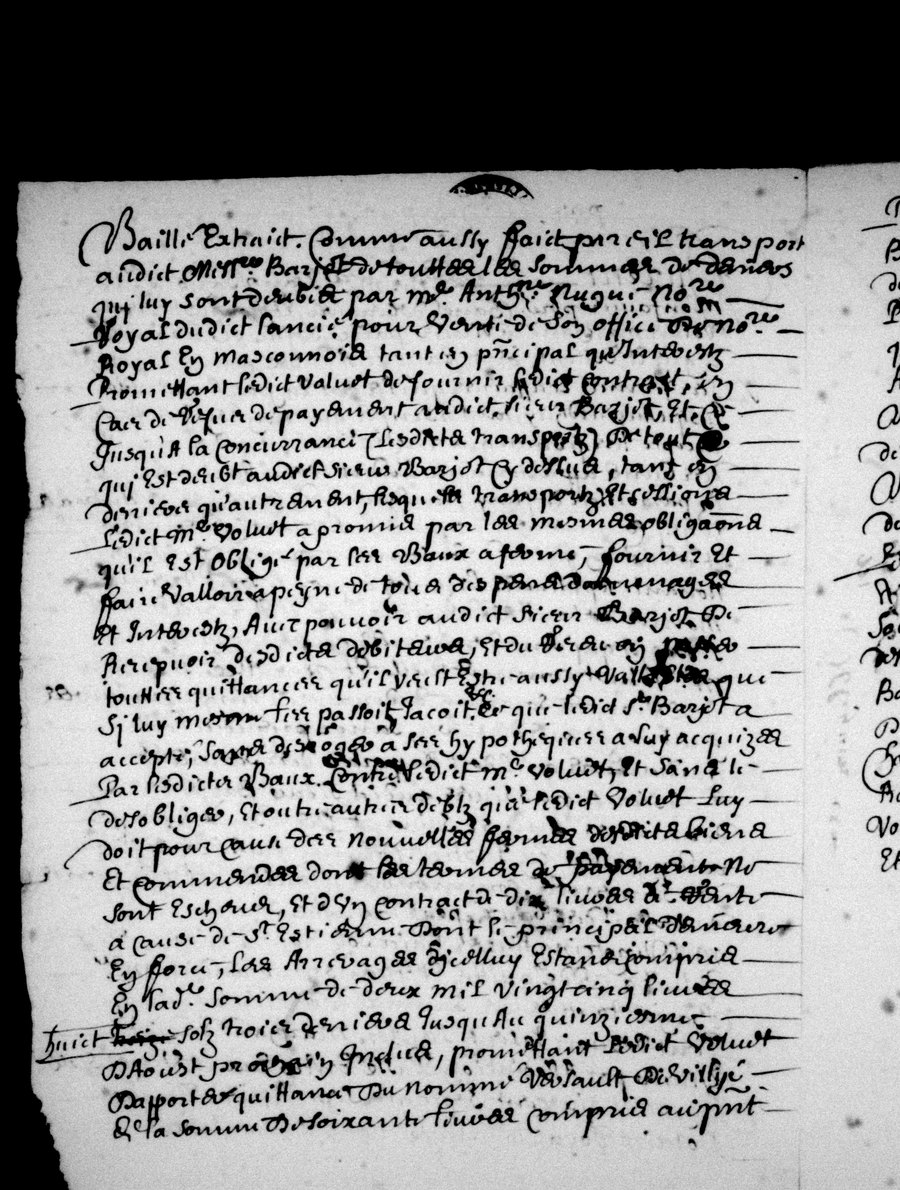 Baillé Extraict. Comme aussy faict pareil transport
audict Messre Barjot de touttes les sommes de deniers
quy luy sont deubies par me. Anthne Nugue Nore
Royal dudict lancié pour vente de son office de Nore
Royal En masconnois tant en pñcipal qu'Interestz
Promettant ledict Valuet de fournir ledict contract, en
Cas de refus de payement audict sieur Barjot, Et ce
Jusqu'A la concurrance lesdicts transportz De tout ce
quj Est deubt audict sieur Barjot Cy dessus, tant en
deniers qu'autrement, lesquels transportz Et cessions
Ledict me. Voluet a promis par les mesmes obligaõns
qu'il Est Obligé par les Baux a ferme, fournir Et
ffaire Valloir a peyne de tous despens dommages
Et Interestz, Avec pouvoir audict sieur Barjot De
Recepvoir desdicts debiteurs, Et du Receu en passer
touttes quittances qu'il verra Estre aussy Vallables que
Sj luy mesme les passoit, Ce que ledict sr. Barjot a
accepté, sans desroger a ses hypotheques a luy acquizes
Par lesdicts Baux Contre ledict me. Voluet, Et sans le
desobliger, Et outre autres debtz que ledict Voluet Luy
doit pour cause des nouvelles fermes desdicts biens
Et commendes dont les termes de payement Ne
sont Escheus, Et d'un contract de dix livres de Rente
a cause de St. Estienne Dont le principal demeure
En force, les Arrerages d'jcelluy Estans compris
En lade. somme de deux mil vingt cinq livres
huict solz trois deniers Jusqu'Au quinziesme
D'Aoust prochain Inclus, promettant Ledict Voluet
Rapporter quittance Du nommé Versault De Villié
de la somme De soixante livres compris au pñt